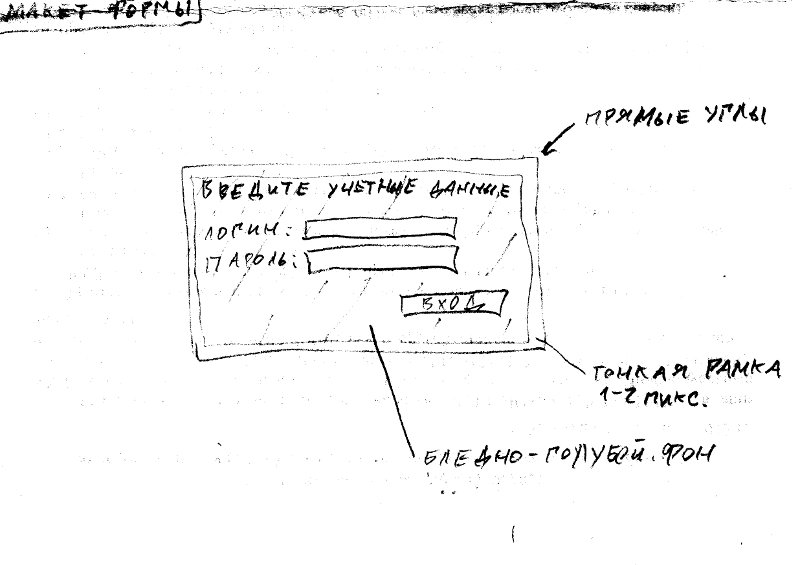 МАКЕТ ФОРМЫ
ПРЯМЫЕ УГЛЫ
ВВЕДИТЕ УЧЕТНЫЕ ДАННЫЕ
ЛОГИН:
ПАРОЛЬ:
ВХОД
ТОНКАЯ РАМКА
1-2 ПИКС.
БЛЕДНО-ГОЛУБОЙ ФОН